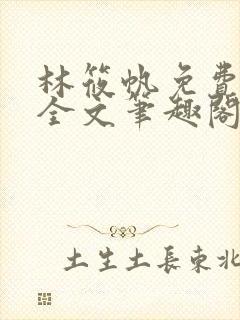 林筱帆免費
全文筆趣閣
土生土長東北